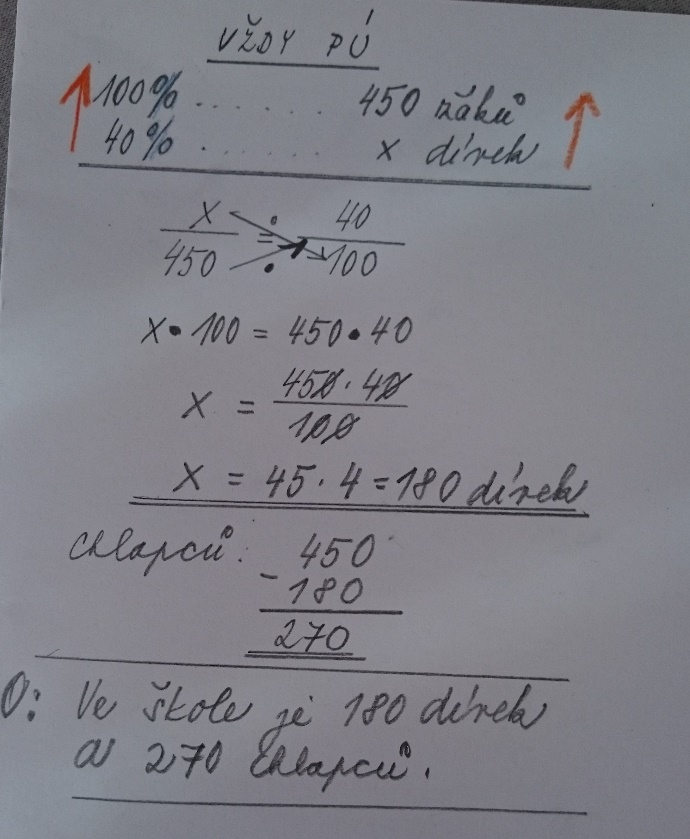 VŽDY PÚ
100% ....... 450 žáků
40% ....... x dívek
x/450 = 40/100
x • 100 = 450 • 40
x = 450 · 40 / 100
x = 45 · 4 = 180 dívek
chlapců: 450
- 180
270
O: Ve škole je 180 dívek
a 270 chlapců.